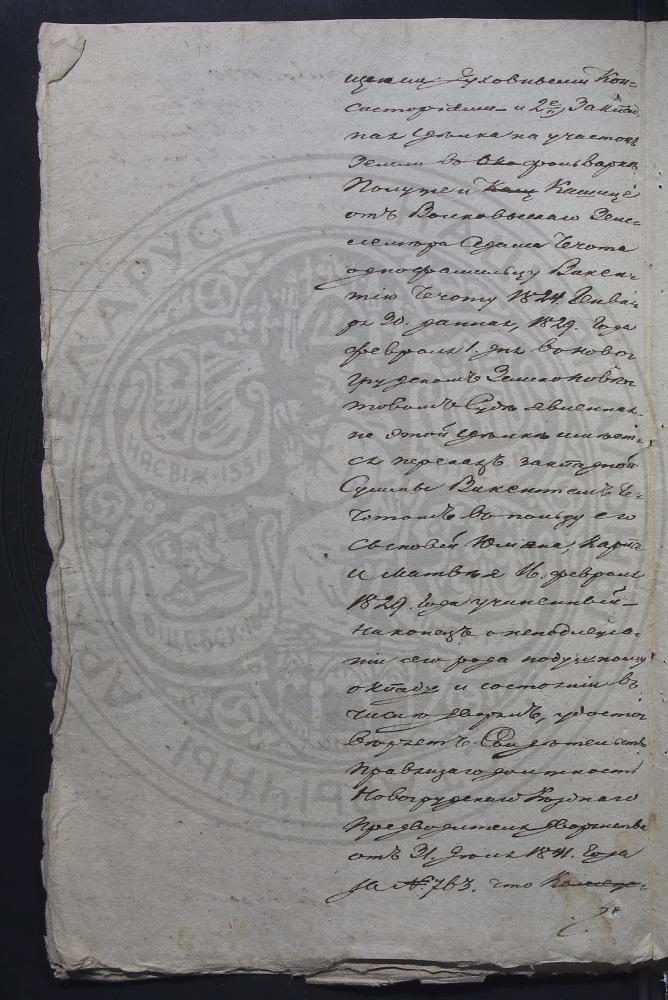 щими Духовными Кон-
систоріями и 2е/, Заклад
ная сдѣлка на участокъ
Земли во фольваркѣ
Полужеи Кашице
отъ Волковыскаго Зем-
лемѣра Адама Чечота
однофамильцу Викен-
тію Чечоту 1824. Генва-
ря 30. данная, 1829. Года
февраля 1. дня во Ново-
грудскомъ Земско повѣ-
товомъ Судѣ явленная
на этой сдѣлкѣ имѣет-
ся переказъ закладной
Суммы Викентіемъ Че-
чотомъ во пользу его
сыновей Юліяна, Карла
и Матвѣя 16. февраля
1829. Года учиненный
наконецъ о неподлежа-
ніи сего рода подушному
окладу и состояніи въ
числѣ дворянъ, удосто-
вѣряетъ Свидѣтельство
правящаго должность
Новогрудскаго Уѣзднаго
Предводителя дворянства
отъ 31. Іюля 1841. Года
за № 763. что
НЯСВІЖ 1551
ВІЦЕБСК 1597